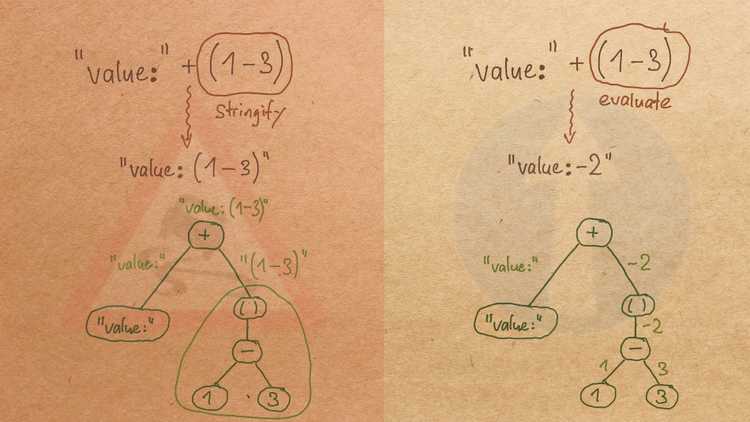 "value:" + (1-3)
stringify
"value: (1-3)"
"value: (1-3)"
+
"value:"
"(1-3)"
"value:"
()
-
1
3
"value:" + (1-3)
evaluate
"value:-2"
+
"value:"
-2
"value:"
()
-2
-
1
3
1
3